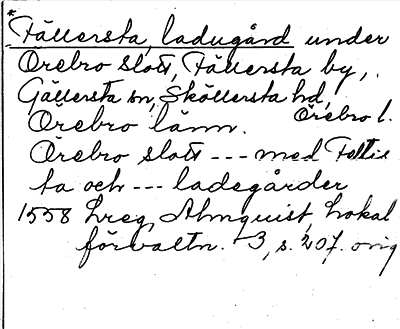 *
Fällersta, ladugård under
Örebro slott, Fällersta by,
Gällersta sn, Sköllersta hd,
Örebro län. Örebro l.
Örebro slott --- med Feltis
ta och --- ladegårder
1558 Lreg, Almquist, Lokal
förvaltn. 3, s. 207. orig